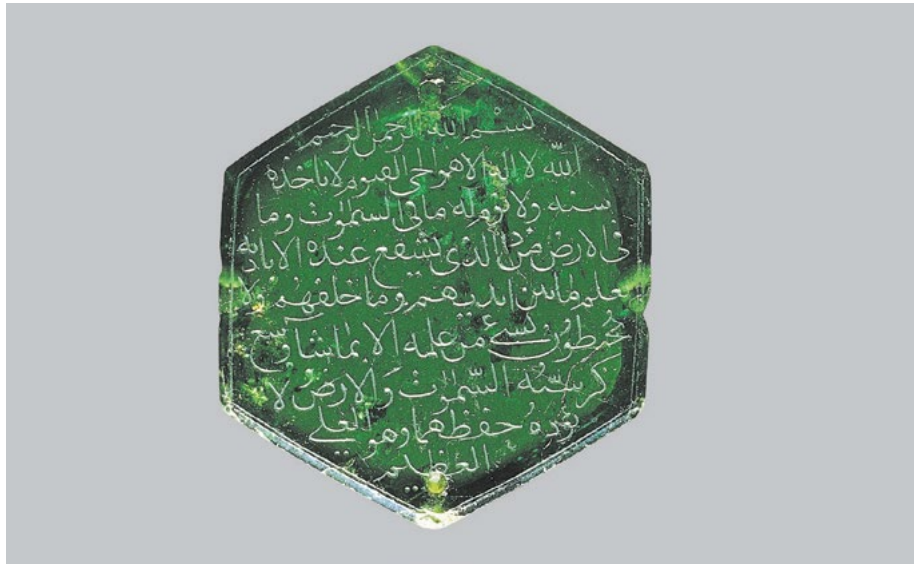 بسم الله الرحمن الرحيم
الله لا اله الا هو الحى القيوم لا تاخذه
سنه ولا نوم له ما فى السموات وما
فى الارض من ذا الذى يشفع عنده الا باذنه
يعلم ما بين ايديهم وما خلفهم ولا
يحيطون بشئ من علمه الا بما شا وسع
كرسيه السموات والارض ولا
يؤده حفظهما وهو العلي
العظيم